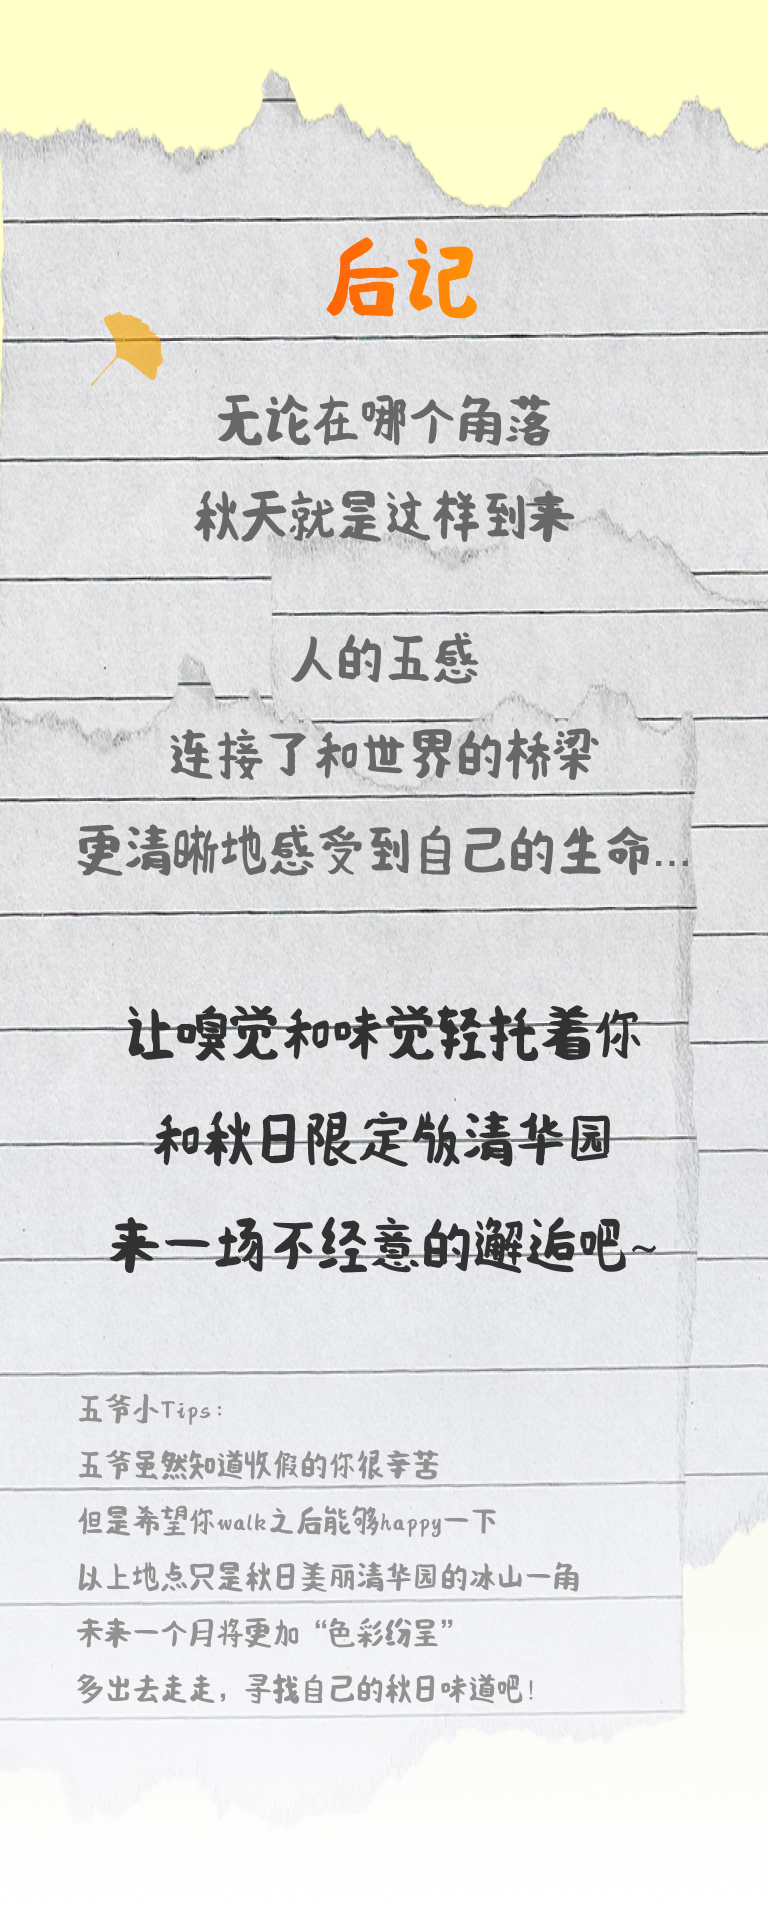 后记
无论在哪个角落
秋天就是这样到来
人的五感
连接了和世界的桥梁
更清晰地感受到自己的生命...
让嗅觉和味觉轻托着你
和秋日限定版清华园
来一场不经意的邂逅吧~
五爷小Tips:
五爷虽然知道收假的你很辛苦
但是希望你walk之后能够happy一下
以上地点只是秋日美丽清华园的冰山一角
未来一个月将更加“色彩纷呈”
多出去走走，寻找自己的秋日味道吧!